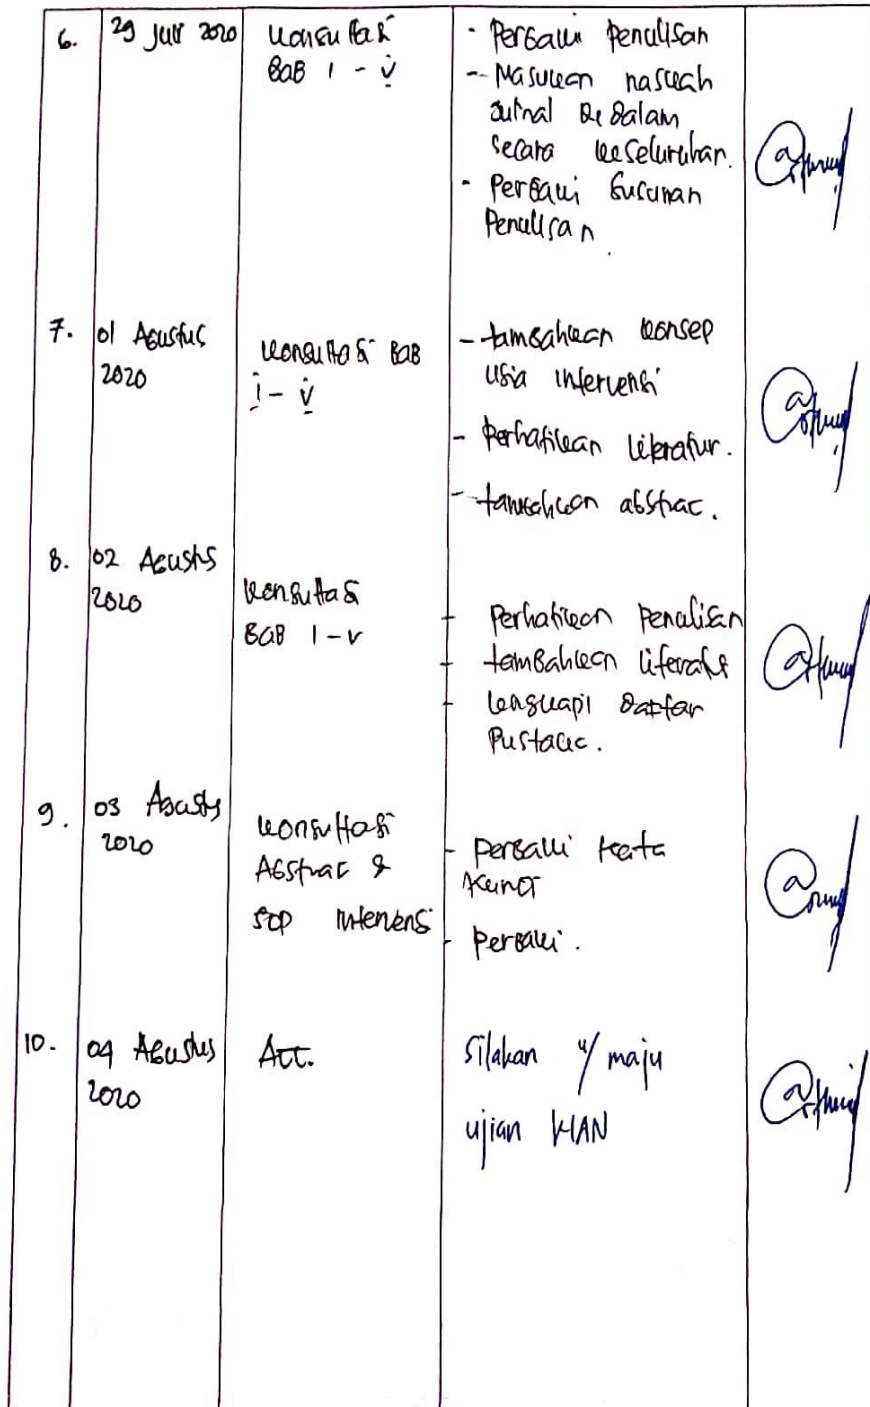 6.
29 Juli 2020
Konsultasi
BAB I - V
- Perbaiki penulisan
- Masukan naskah
jurnal ke dalam
secara keseluruhan.
- Perbaiki susunan
Penulisan.
7.
01 Agustus
2020
Konsultasi BAB
I - V
- tambahkan konsep
usia intervensi
- Perhatikan literatur.
- tambahkan abstrac.
8.
02 Agustus
2020
Konsultasi
BAB I - V
- Perhatikan penulisan
- tambahkan literatur
- lengkapi daftar
Pustaka.
9.
03 Agustus
2020
Konsultasi
Abstrac &
SOP Intervensi
- perbaiki kata
kunci
- perbaiki.
10.
04 Agustus
2020
Acc.
Silakan u/ maju
ujian KIAN